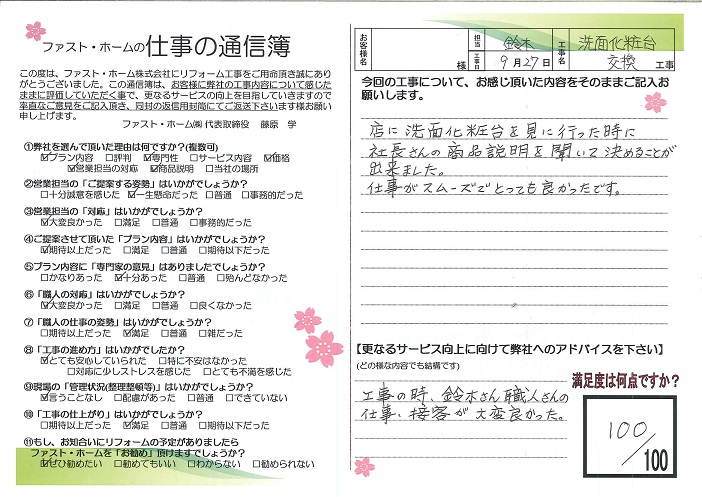 ファスト・ホームの仕事の通信簿
この度は、ファスト・ホーム株式会社にリフォーム工事をご用命頂き誠にあり
がとうございました。この通信簿は、お客様に弊社の工事内容について感じた
ままに評価していただく事で、更なるサービスの向上を目指していきますので
率直なご意見をご記入頂き、同封の返信用封筒にてご返送下さいます様お願い
申し上げます。
ファスト・ホーム㈱ 代表取締役 藤原 学
①弊社を選んで頂いた理由は何ですか?(複数可)
☑プラン内容 □評判 ☑専門性 □サービス内容 ☑価格
☑営業担当の対応 ☑商品説明 □当社の場所
②営業担当の「ご提案する姿勢」はいかがでしょうか?
□十分誠意を感じた ☑一生懸命だった □普通 □事務的だった
③営業担当の「対応」はいかがでしょうか?
☑大変良かった □満足 □普通 □事務的だった
④ご提案させて頂いた「プラン内容」はいかがでしょうか?
☑期待以上だった □満足 □普通 □期待以下だった
⑤プラン内容に「専門家の意見」はありましたでしょうか?
□かなりあった ☑十分あった □普通 □殆んどなかった
⑥「職人の対応」はいかがでしょうか?
☑大変良かった □満足 □普通 □良くなかった
⑦「職人の仕事の姿勢」はいかがでしょうか?
□期待以上だった ☑満足 □普通 □雑だった
⑧「工事の進め方」はいかがでしたか?
☑とても安心していられた □特に不安はなかった
□対応に少しストレスを感じた □とても不満を感じた
⑨現場の「管理状況(整理整頓等)」はいかがでしょうか?
☑言うことなし □配慮があった □普通 □できていない
⑩「工事の仕上がり」はいかがでしょうか?
□期待以上だった ☑満足 □普通 □期待以下だった
⑪もし、お知合いにリフォームの予定がありましたら
ファスト・ホームを「お勧め」頂けますでしょうか?
☑ぜひ勧めたい □勧めてもいい □わからない □勧められない
お客様名 様 担当 鈴木 工事日 9月27日 工事名 洗面化粧台交換 工事
今回の工事について、お感じ頂いた内容をそのままご記入お
願いします。
店に洗面化粧台を見に行った時に
社長さんの商品説明を聞いて決めることが
出来ました。
仕事がスムーズでとっても良かったです。
【更なるサービス向上に向けて弊社へのアドバイスを下さい】
(どの様な内容でも結構です)
工事の時、鈴木さん職人さんの
仕事、接客が大変良かった。
満足度は何点ですか?
100/100